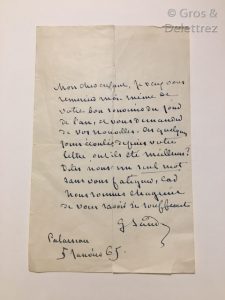 © Gros &
Delettrez
Mon cher enfant, je veux vous
remercier moi même de
votre bon souvenir du
de l'an, et vous demander
de vos nouvelles. Ces quelques
jours écoulés depuis votre
lettre ont ils été meilleurs?
Dites nous un seul mot
sans vous fatiguer, car
nous sommes
de vous savoir si souffrant
G Sand
Palaiseau
5 Janvier 65